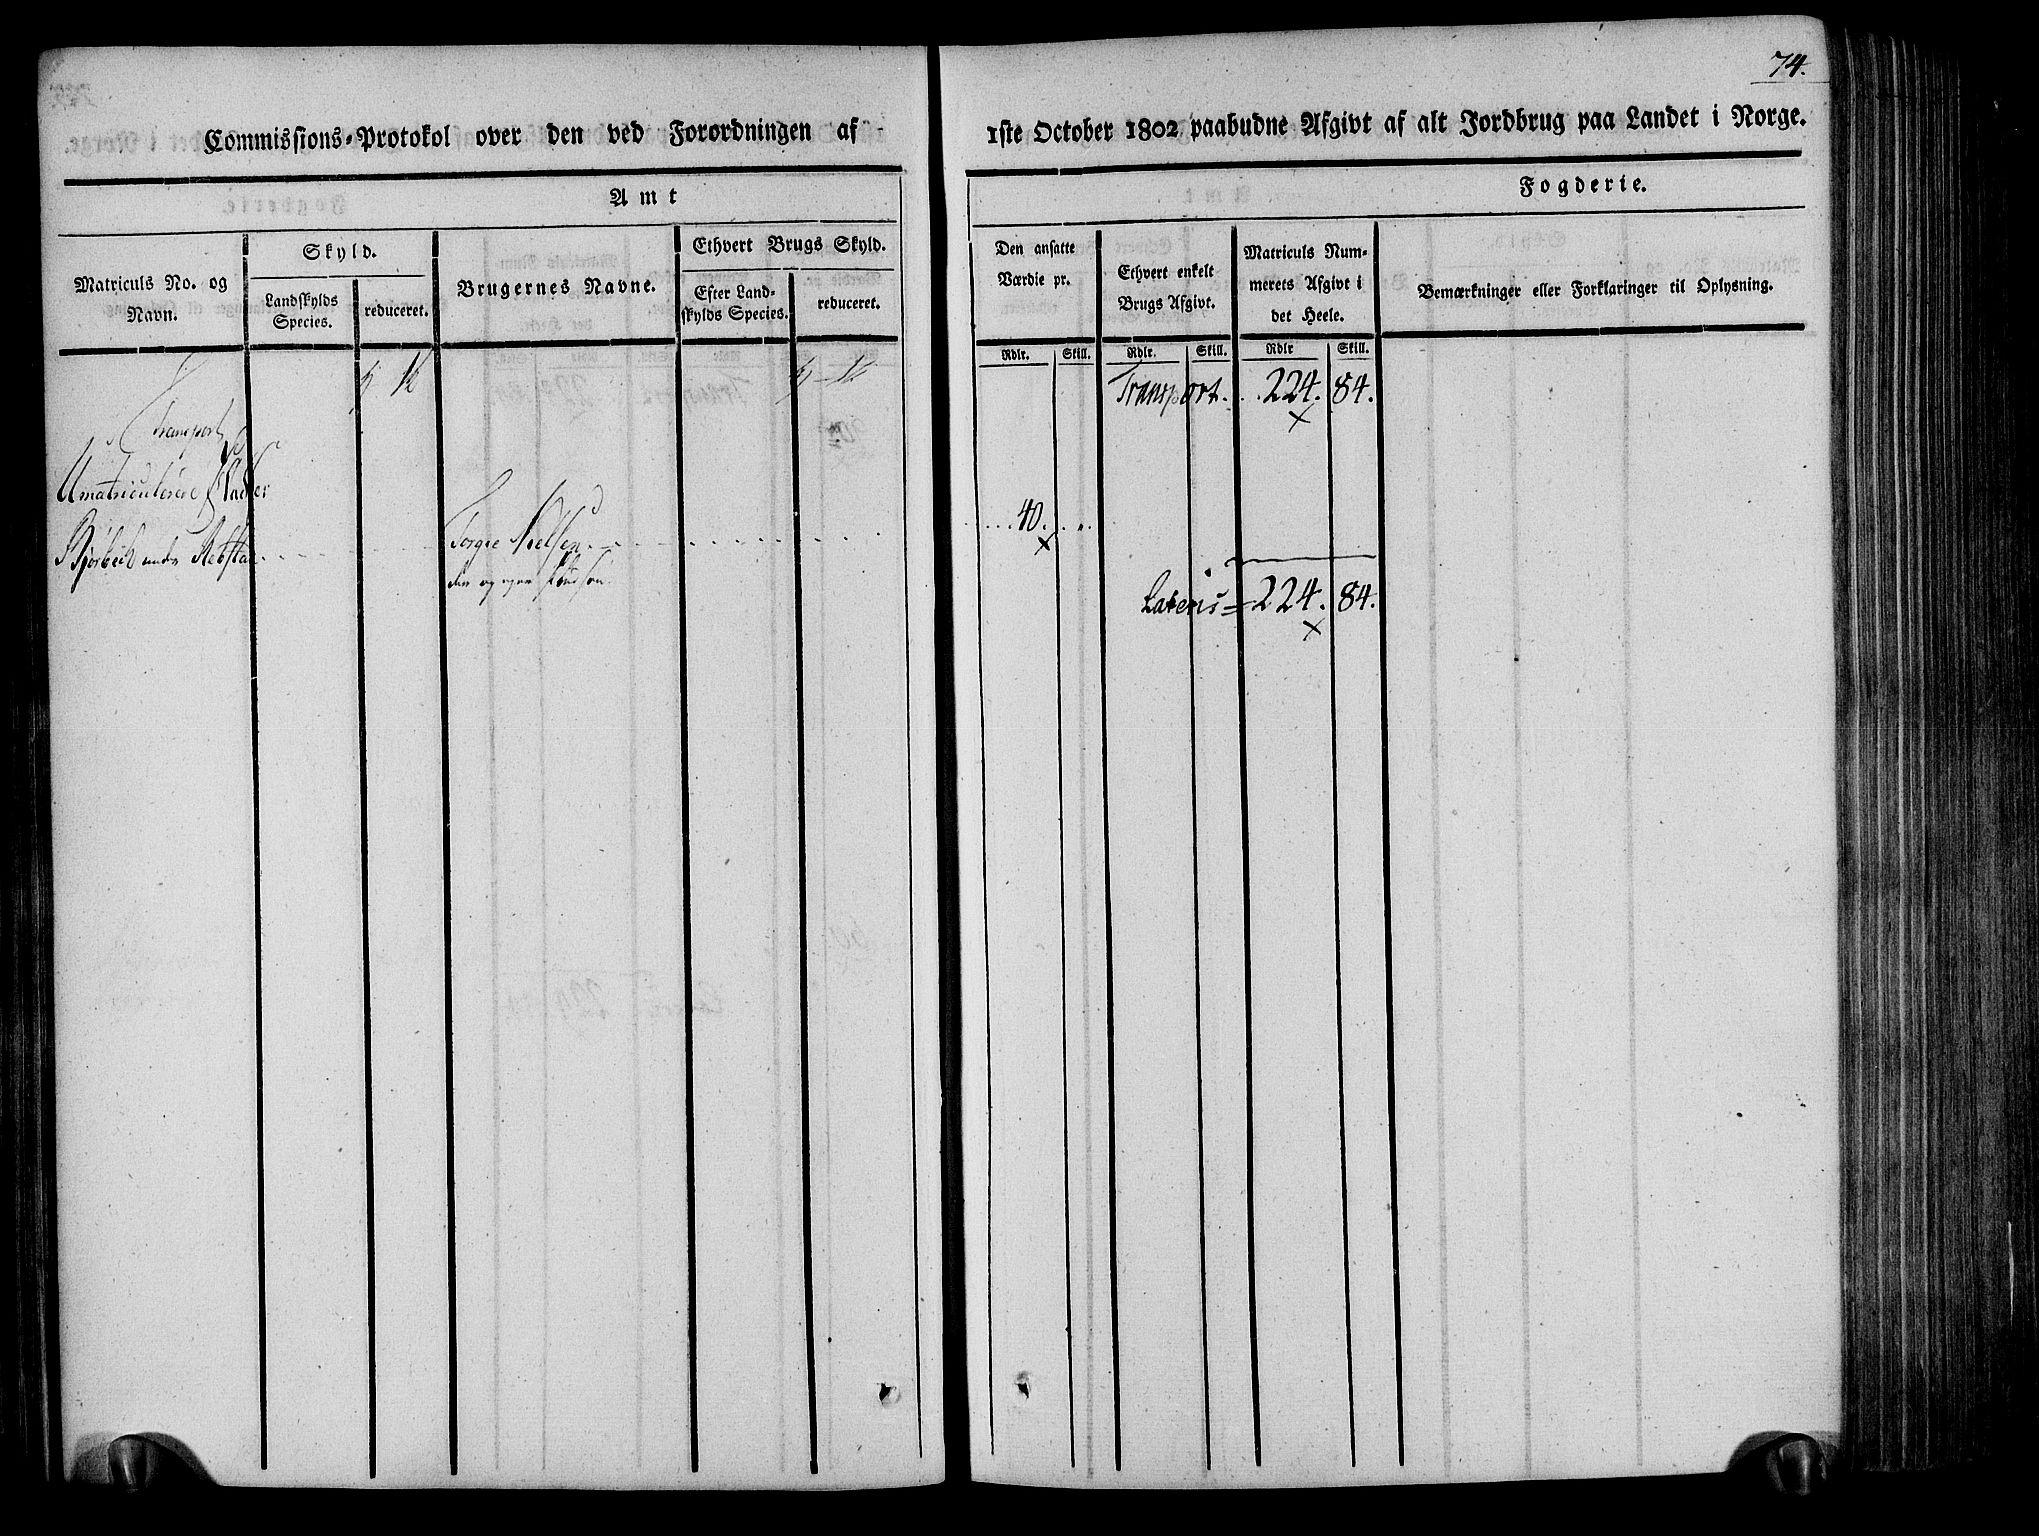 74.
Commissions-Protokol over den ved Forordningen af
1ste October 1802 paabudne Afgivt af alt Jordbrug paa Landet i Norge.
Amt
Fogderie.
Matriculs No. og Navn.
Skyld.
Landskylds Species.
reduceret.
Brugernes Navne.
Ethvert Brugs Skyld.
Efter Landskylds Species.
reduceret.
Den ansatte Værdie pr.
Ethvert enkelt Brugs Afgivt.
Matriculs Nummerets Afgivt i det Heele.
Bemærkninger eller Forklaringer til Oplysning.
Rdlr. Skill. Rdlr. Skill. Rdlr Skill.
Transport
Transport. 224. 84.
Umatriculerere
Torger Nielsen
40.
Lateris = 224. 84.